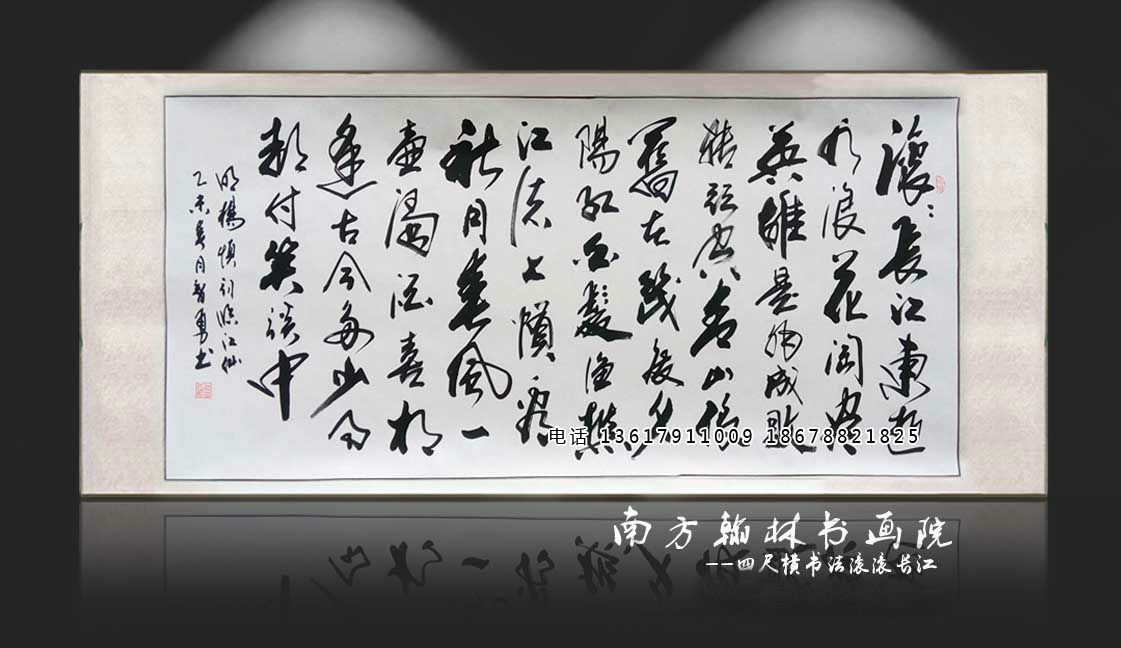 滾〻長江東逝
水浪花淘盡
英雄是非成敗
轉頭空青山依
舊在幾度夕
陽紅白髮漁樵
江渚上慣看
秋月春風一
壺濁酒喜相
逢古今多少事
都付笑談中
明楊慎词臨江仙
乙未春月智勇书
电话 13617911009 18678821825
南方翰林书画院
--四尺横书法滚滚长江